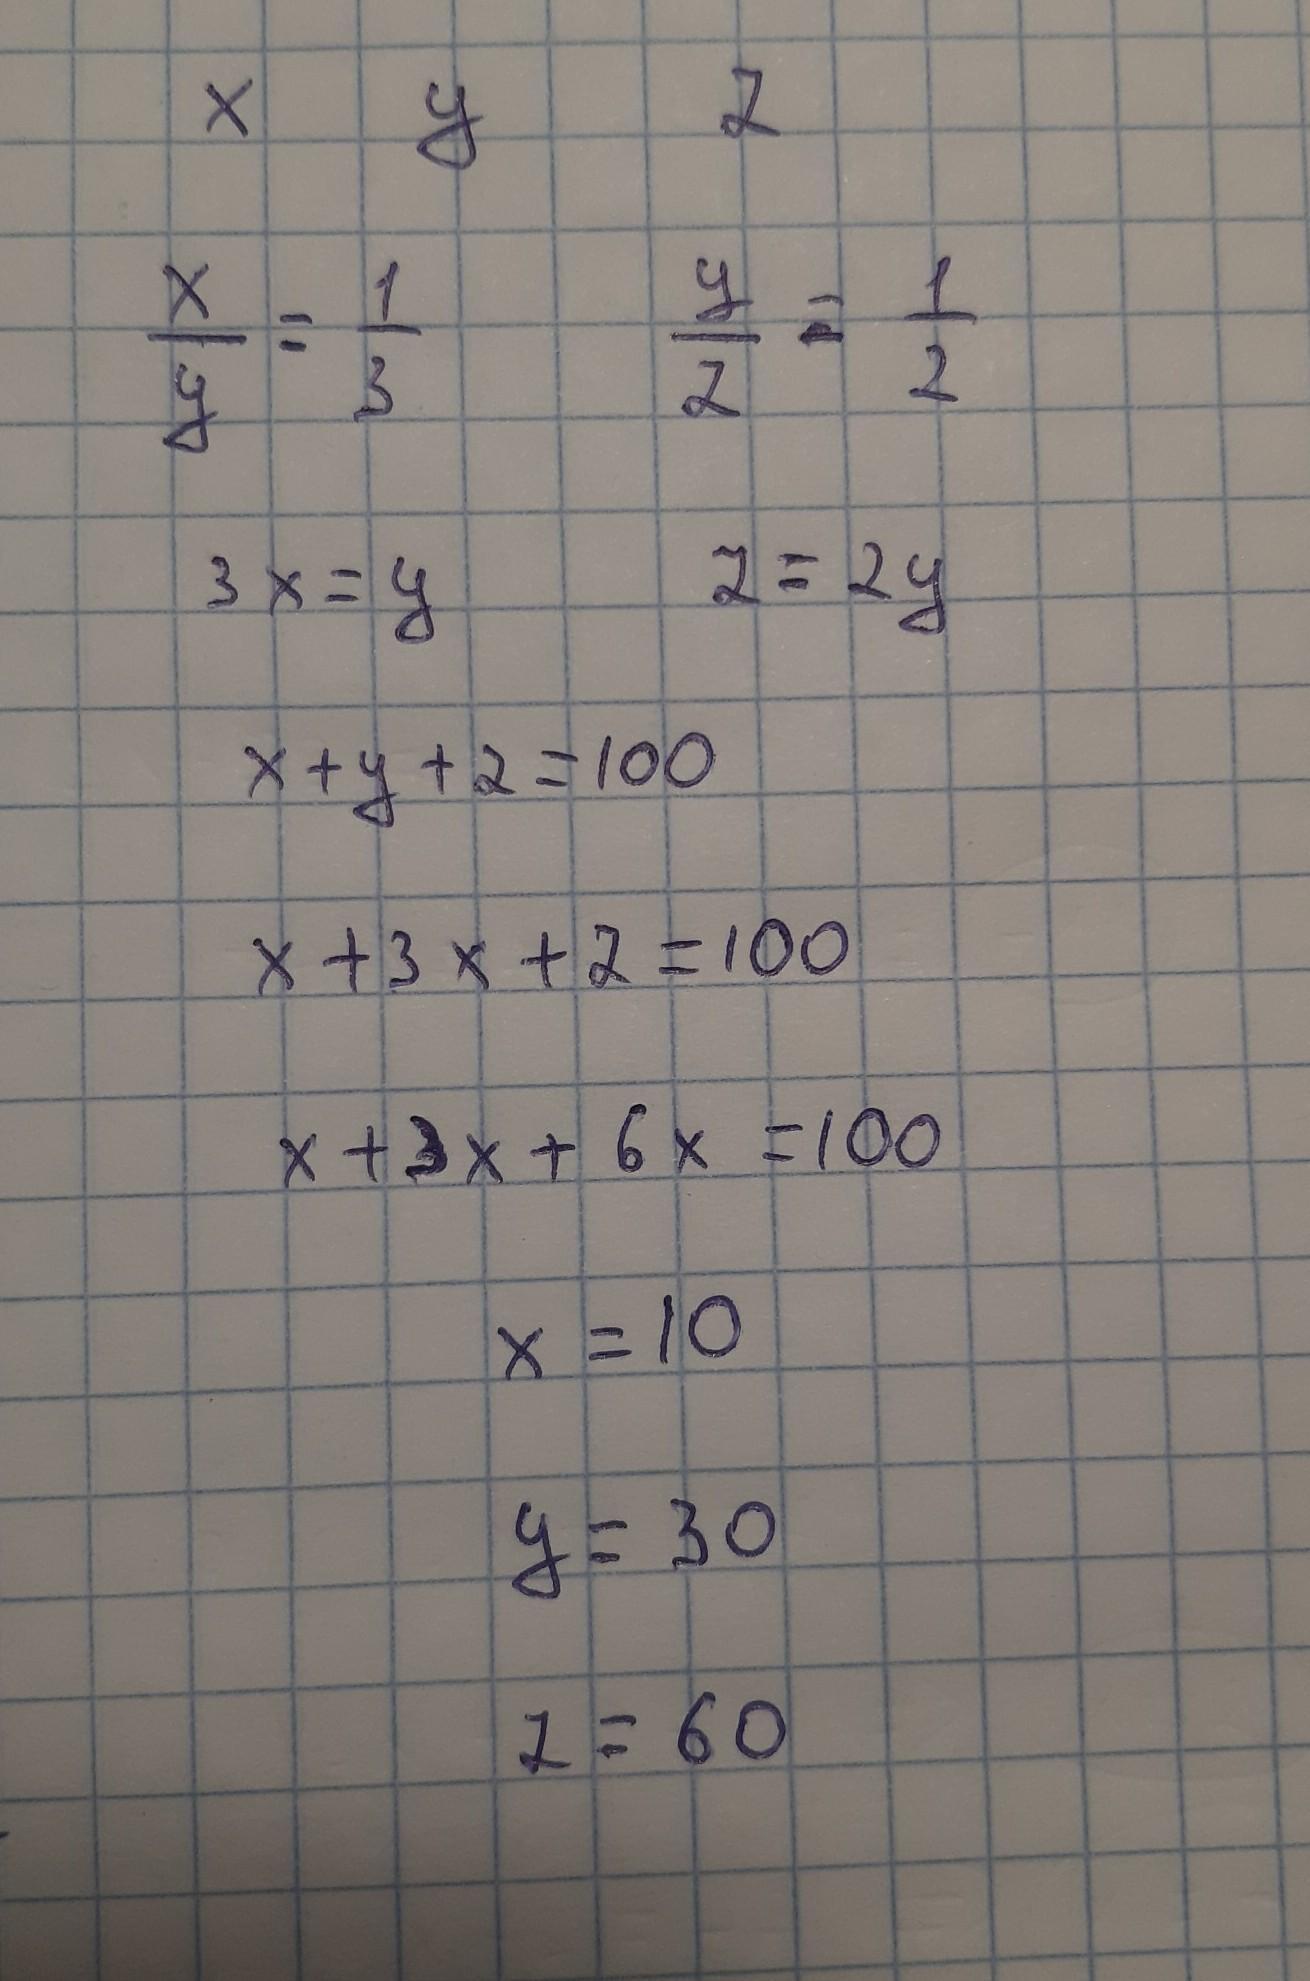 x y z
x/y = 1/3 y/z = 1/2
3x = y z = 2y
x + y + z = 100
x + 3x + z = 100
x + 3x + 6x = 100
x = 10
y = 30
z = 60